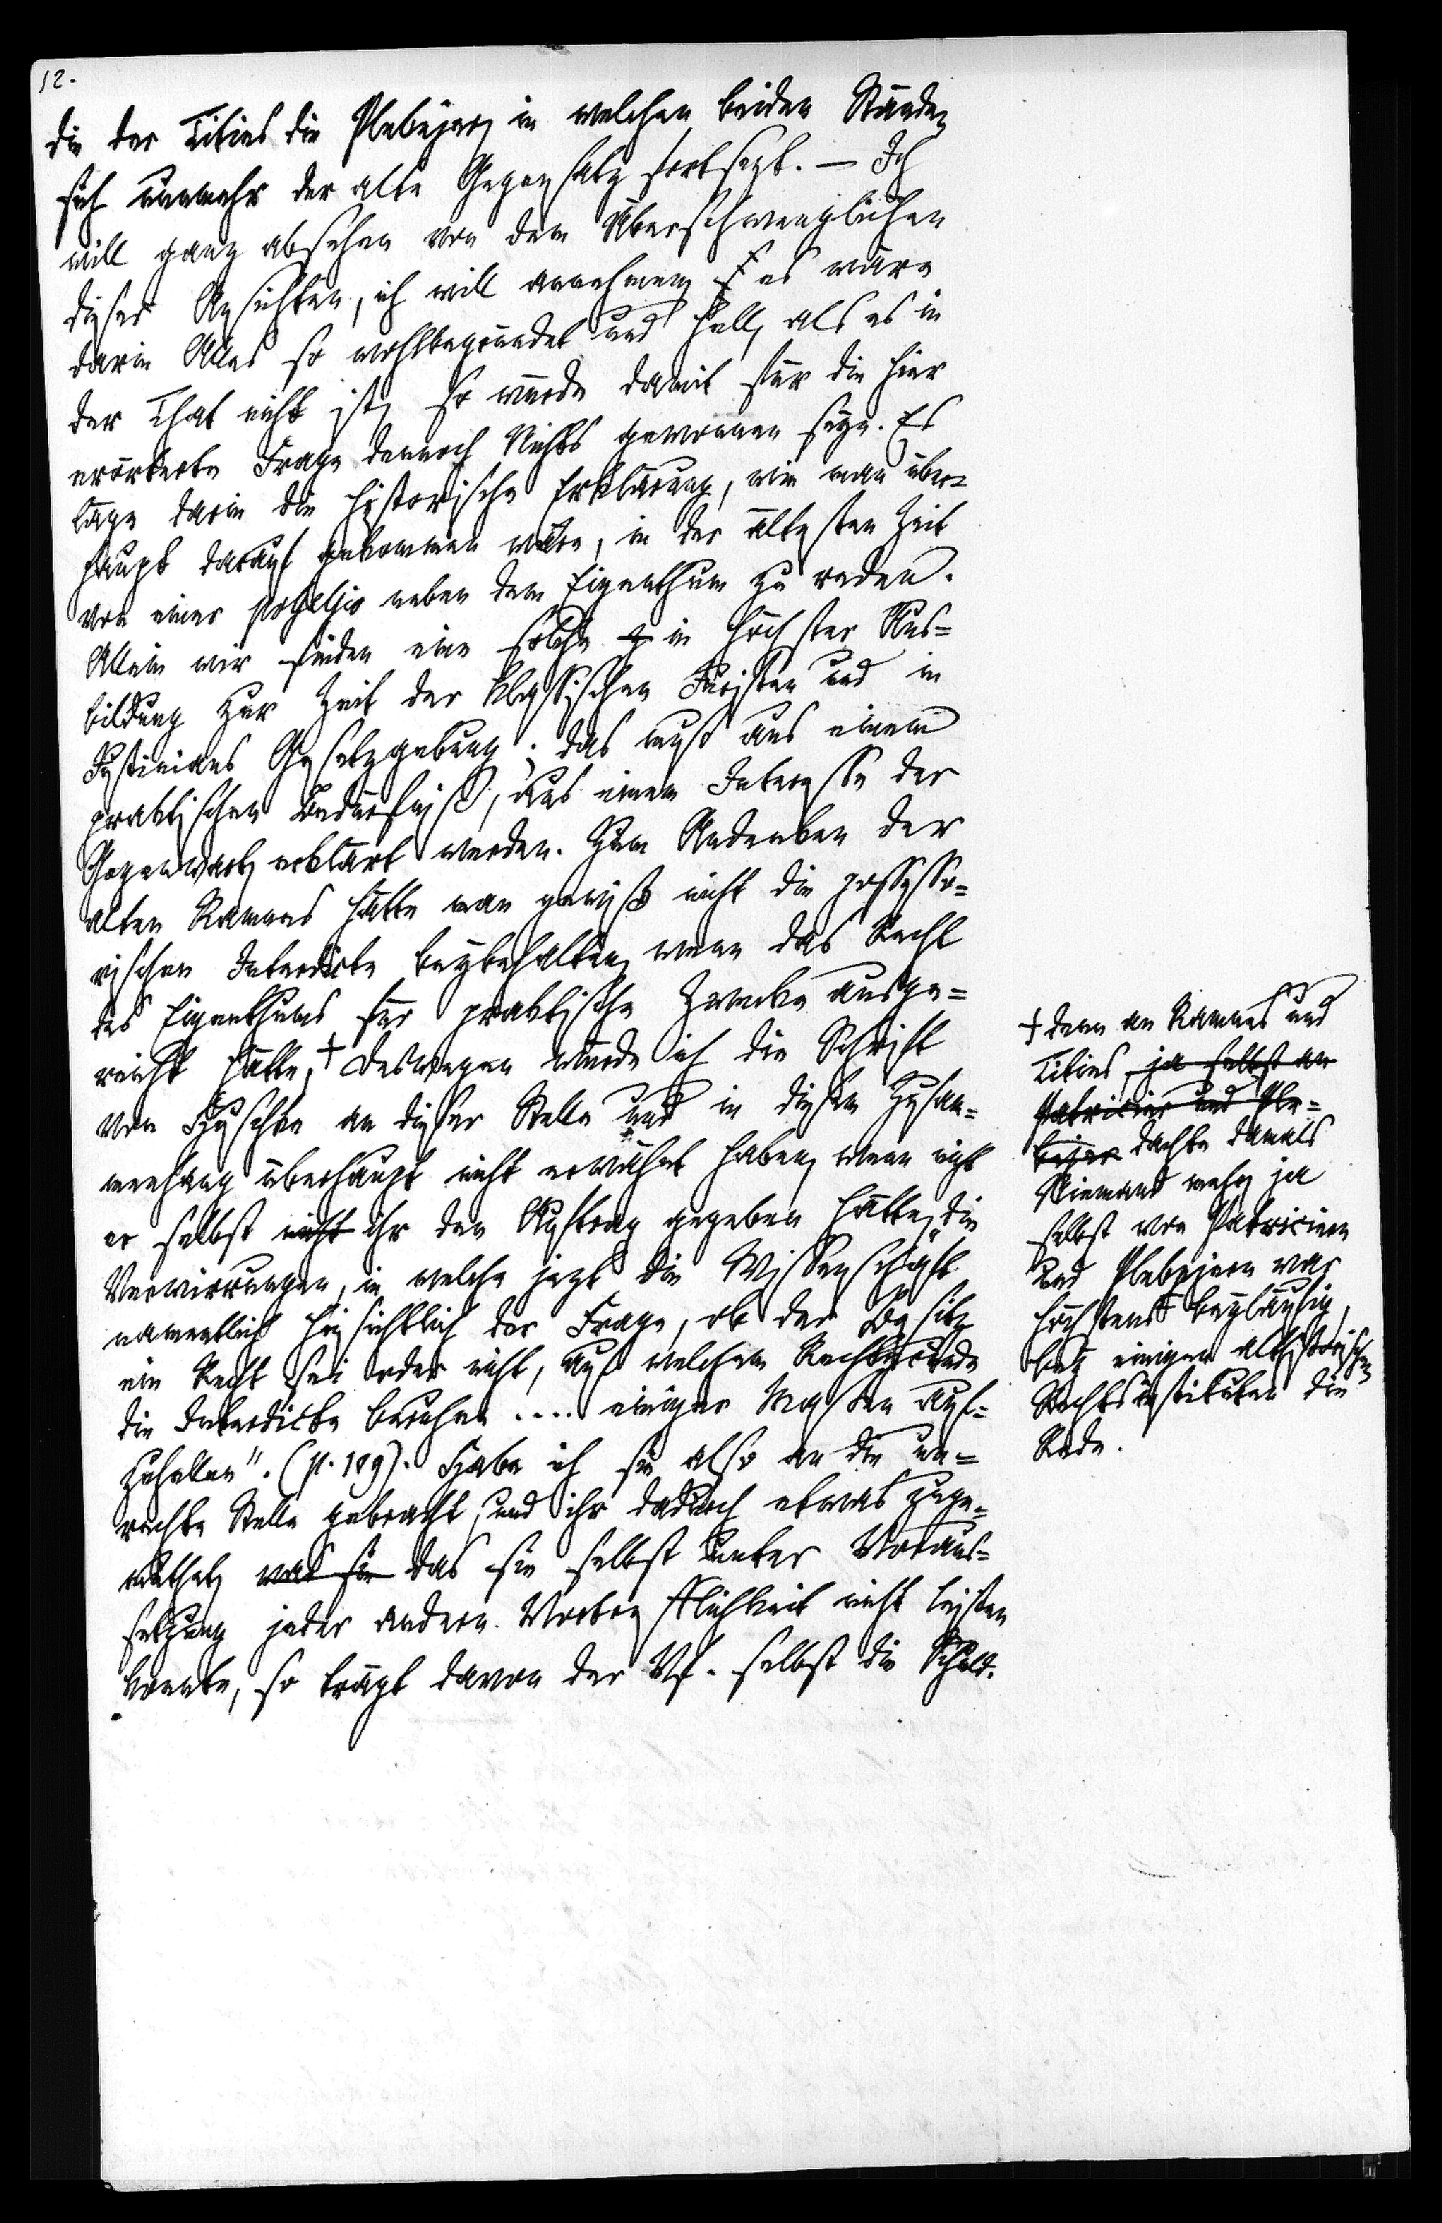 12.
die der Tities die Plebejer, in welchen beiden Ständen
sich nunmehr der alte Gegensatz fortsezt. — Ich
will ganz absehen von dem Überschwenglichen
dieser Ansichten, ich will annehmen, es wäre
darin Alles so wohlbegründet und hell, als es in
der That nicht ist, so würde damit für die hier
erörterte Frage dennoch Nichts gewonnen seyn. Es
läge darin die historische Erklärung, wie man über=
haupt darauf gekommen wäre, in der ältesten Zeit
von einer possessio neben dem Eigenthum zu reden.
Allein wir finden eine solche in höchster Aus=
bildung zur Zeit der klassischen Juristen und in
Justinians Gesetzgebung; das muß aus einem
praktischen Bedürfniß, aus einem Interesse der
Gegenwart, erklärt werden. Zum Andenken der
alten Ramnes hätte man gewiß nicht die possesso=
rischen Interdicte beybehalten, wenn das Recht
des Eigenthums für praktische Zwecke ausge=
reicht hätte; + Deswegen würde ich die Schrift
von Huschke an dieser Stelle und in diesem Zusam=
menhang überhaupt nicht erwähnt haben, wenn nicht
er selbst nicht ihr den Auftrag gegeben hätte, „die
Verwirrungen, in welche jezt die Wissenschaft
namentlich hinsichtlich der Frage, ob der Besitz
ein Recht sei oder nicht, auf welchem Rechtsgrunde
die Interdicte beruhen .... einiger Maßen auf=
zuhellen". (p. 109). Habe ich sie also an die un=
rechte Stelle gebracht, und ihr dadurch etwas zuge=
muthet, was sie das sie selbst unter Voraus=
setzung jeder andern Vortrefflichkeit nicht leisten
konnte, so trägt davon der Vf. selbst die Schuld.
+ denn an Ramnes und
Tities, ja selbst an
Patricier und Ple=
bejer dachte damals
Niemand mehr, ja
selbst von Patriciern
und Plebejern war
höchstens beyläufig,
bey einigen althistorischen
Rechtsinstituten die
Rede.